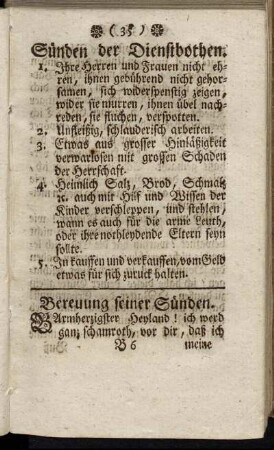 ( 35 )
Sünden der Dienstbothen.
1. Ihre Herren und Frauen nicht eh-
ren, ihnen gebührend nicht gehor-
samen, sich widerspenstig zeigen,
wider sie murren, ihnen übel nach-
reden, sie fluchen, verspotten.
2. Unfleißig, schlauderisch arbeiten.
3. Etwas aus grosser Hinläßigkeit
verwarlosen mit grossen Schaden
der Herrschaft.
4. Heimlich Salz, Brod, Schmalz
ꝛc. auch mit Hilf und Wissen der
Kinder verschleppen, und stehlen,
wann es auch für die arme Leuth,
oder ihre nothleydende Eltern seyn
sollte.
5. In kauffen und verkauffen, vom Geld
etwas für sich zuruck halten.
Bereuung seiner Sünden.
BArmherzigster Heyland! ich werd
ganz schamroth, vor dir, daß ich
B 6 meine